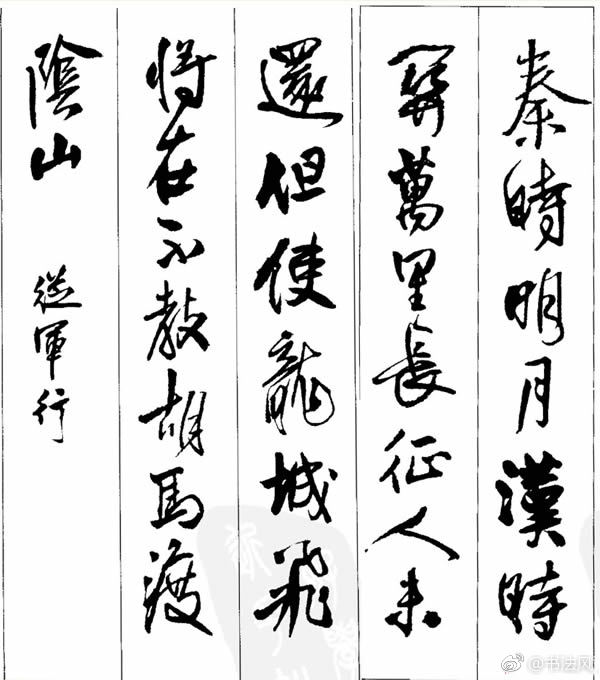 秦時明月漢時
關萬里長征人未
還但使龍城飛
將在不教胡馬渡
陰山 從軍行
@书法网